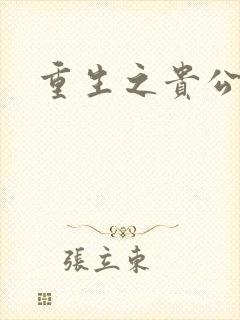 重生之貴公
張立東